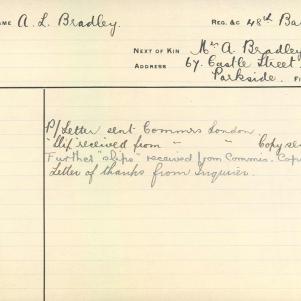 AME A. L. Bradley. REG. &C 48th Ba
NEXT OF KIN Mr A. Bradley
ADDRESS 67. Castle Street.
Parkside. FI
P/Letter sent Commrs London.
Slip received from " " Copy sen
Further "slips" received from Commrs. Copi
Letter of thanks from Inquirer.